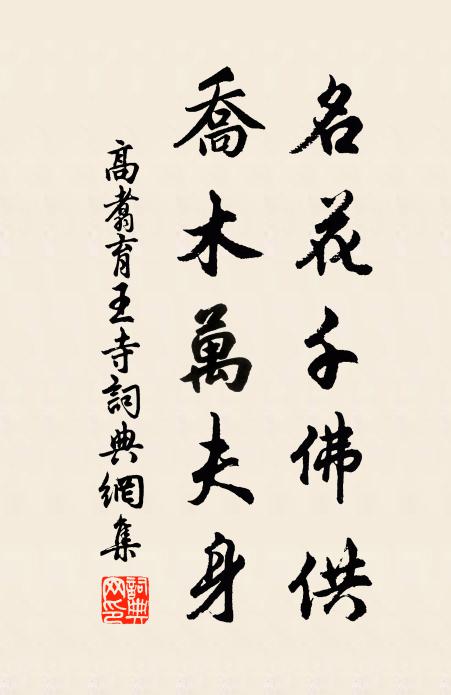 名花千佛供
喬木萬夫身
高翥育王寺詞典網集
詞典網印